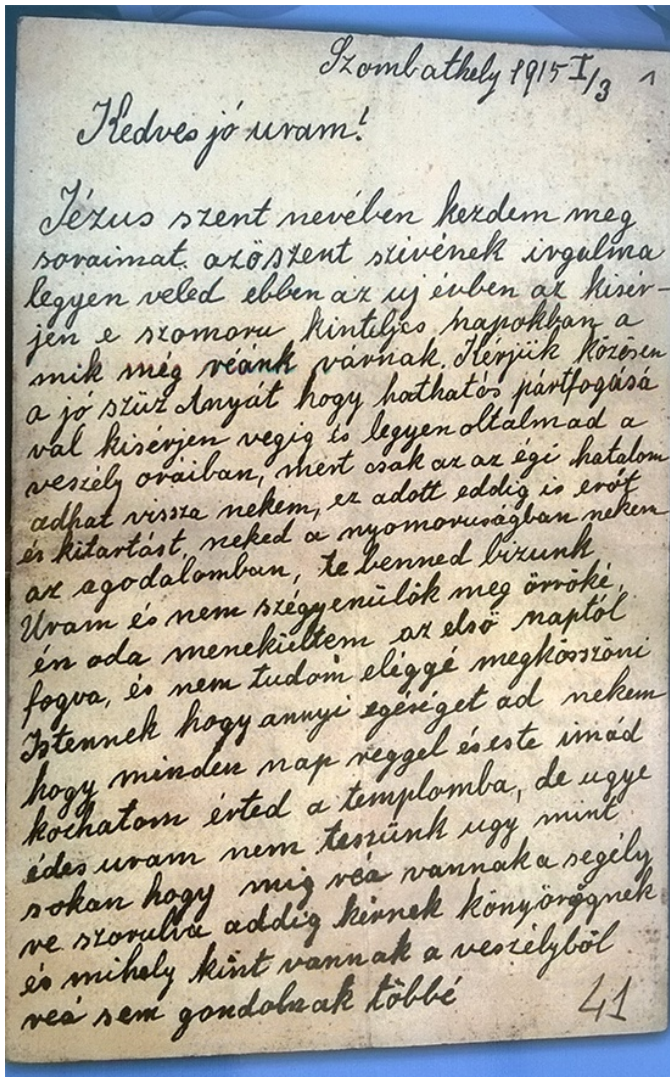 Szombathely 1915 I/3 1
Kedves jó uram!
Jézus szent nevében kezdem meg
soraimat azőszent szivének irgalma
legyen veled ebben az uj évben az kisér-
jen e szomoru kinteljes napokban a
mik még reánk várnak. Kérjük közösen
a jó szüz Anyát hogy hathatós pártfogásá
val kisérjen vegig és legyen oltalmad a
veszély oráiban, mert csak az az égi hatalom
adhat vissza nekem, ez adott eddig is erőt
és kitartást, neked a nyomoruságban nekem
az agodalomban, te benned bizunk
Uram és nem szégyenülök meg örröké,
én oda menekültem az első naptól
fogva, és nem tudom eléggé megkösszöni
Istennek hogy annyi egéséget ad nekem
hogy minden nap reggel éseste imád
kozhatom érted a templomba, de ugye
édes uram nem teszünk ugy mint
sokan hogy mig reá vannak a segély
re szorulva addig kérnek könyörögnek
és mihely kint vannak a veszélyből
reá sem gondolnak többé
41